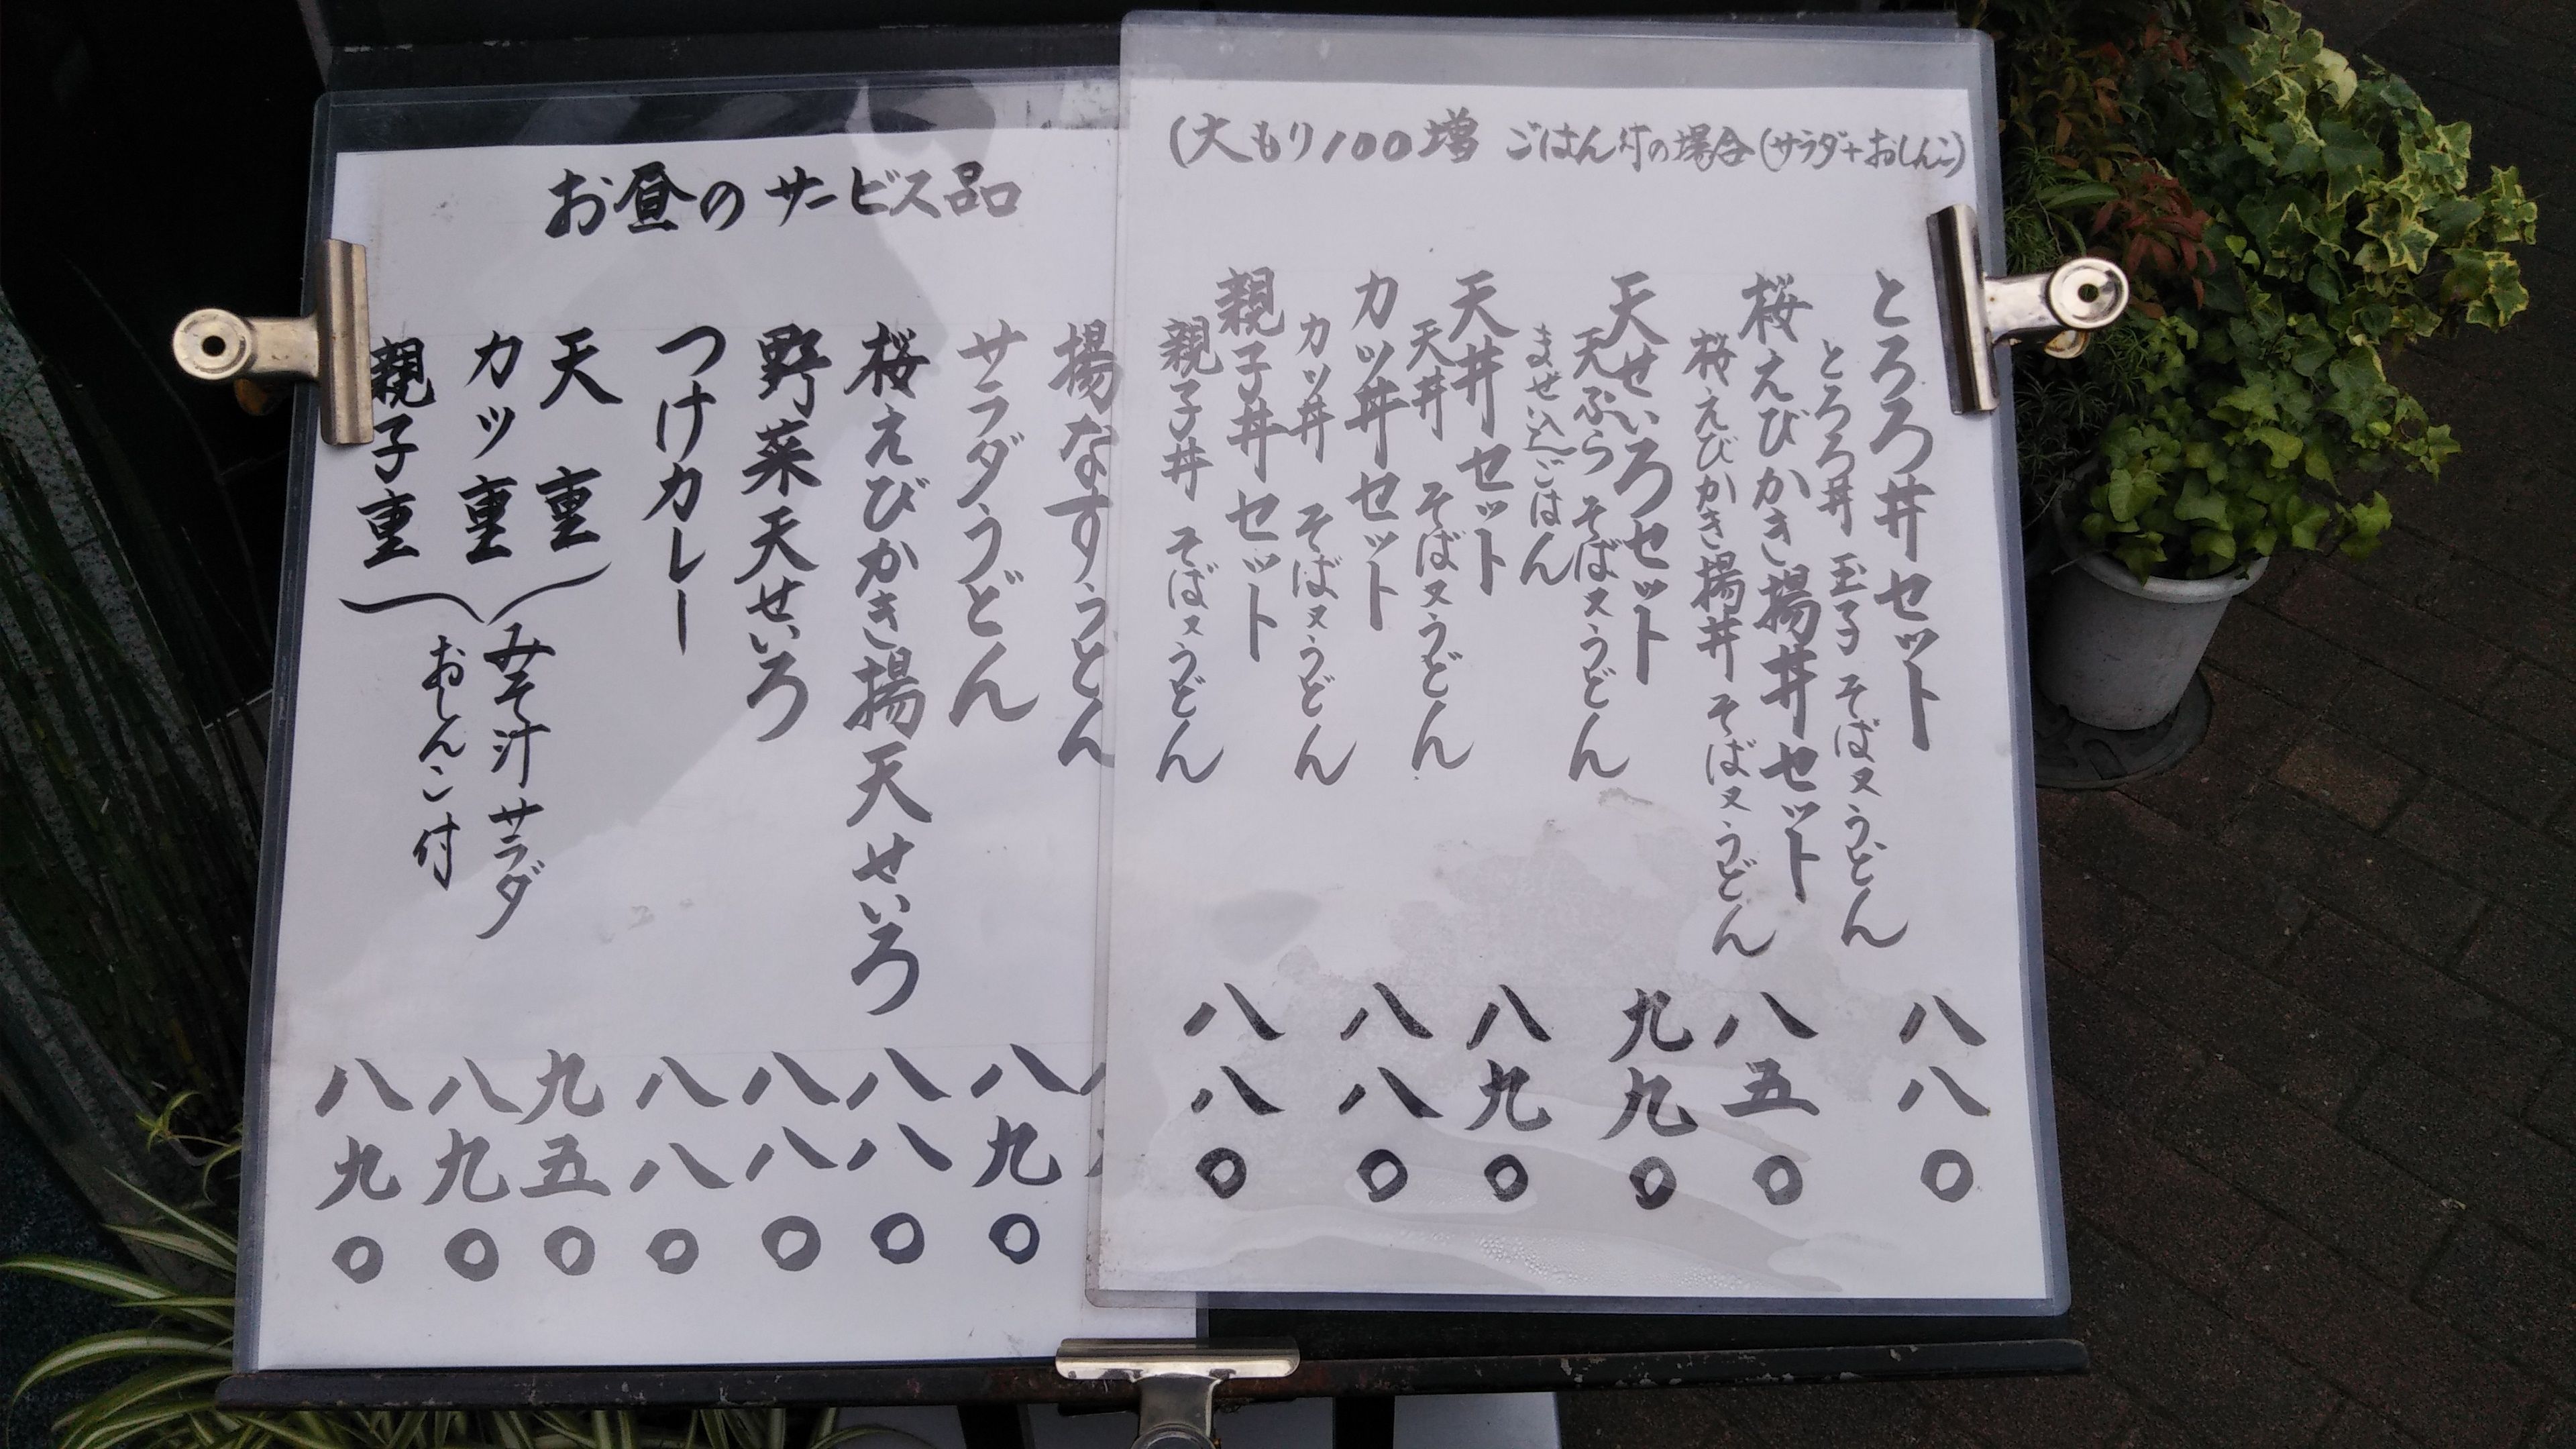 (大もり100増 ごはん付の場合(サラダ+おしんこ)
とろろ丼セット
とろろ丼 玉子 そば又うどん
八八〇
桜えびかき揚丼セット
桜えびかき揚丼 そば又うどん
八五〇
天せいろセット
天ぷら そば又うどん
まぜ込ごはん
九九〇
天丼セット
天丼 そば又うどん
八九〇
カツ丼セット
カツ丼 そば又うどん
八八〇
親子丼セット
親子丼 そば又うどん
八八〇
お昼のサービス品
揚なすうどん
サラダうどん
八九〇
桜えびかき揚天せいろ
八八〇
野菜天せいろ
八八〇
つけカレー
八八〇
天重
九五〇
カツ重
八九〇
親子重
八九〇
みそ汁 サラダ
おしんこ付